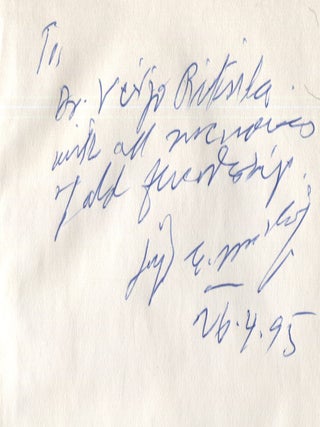 To
Dr. Veijo Pitkola.
with all memories
of old friendship.
26.4.95